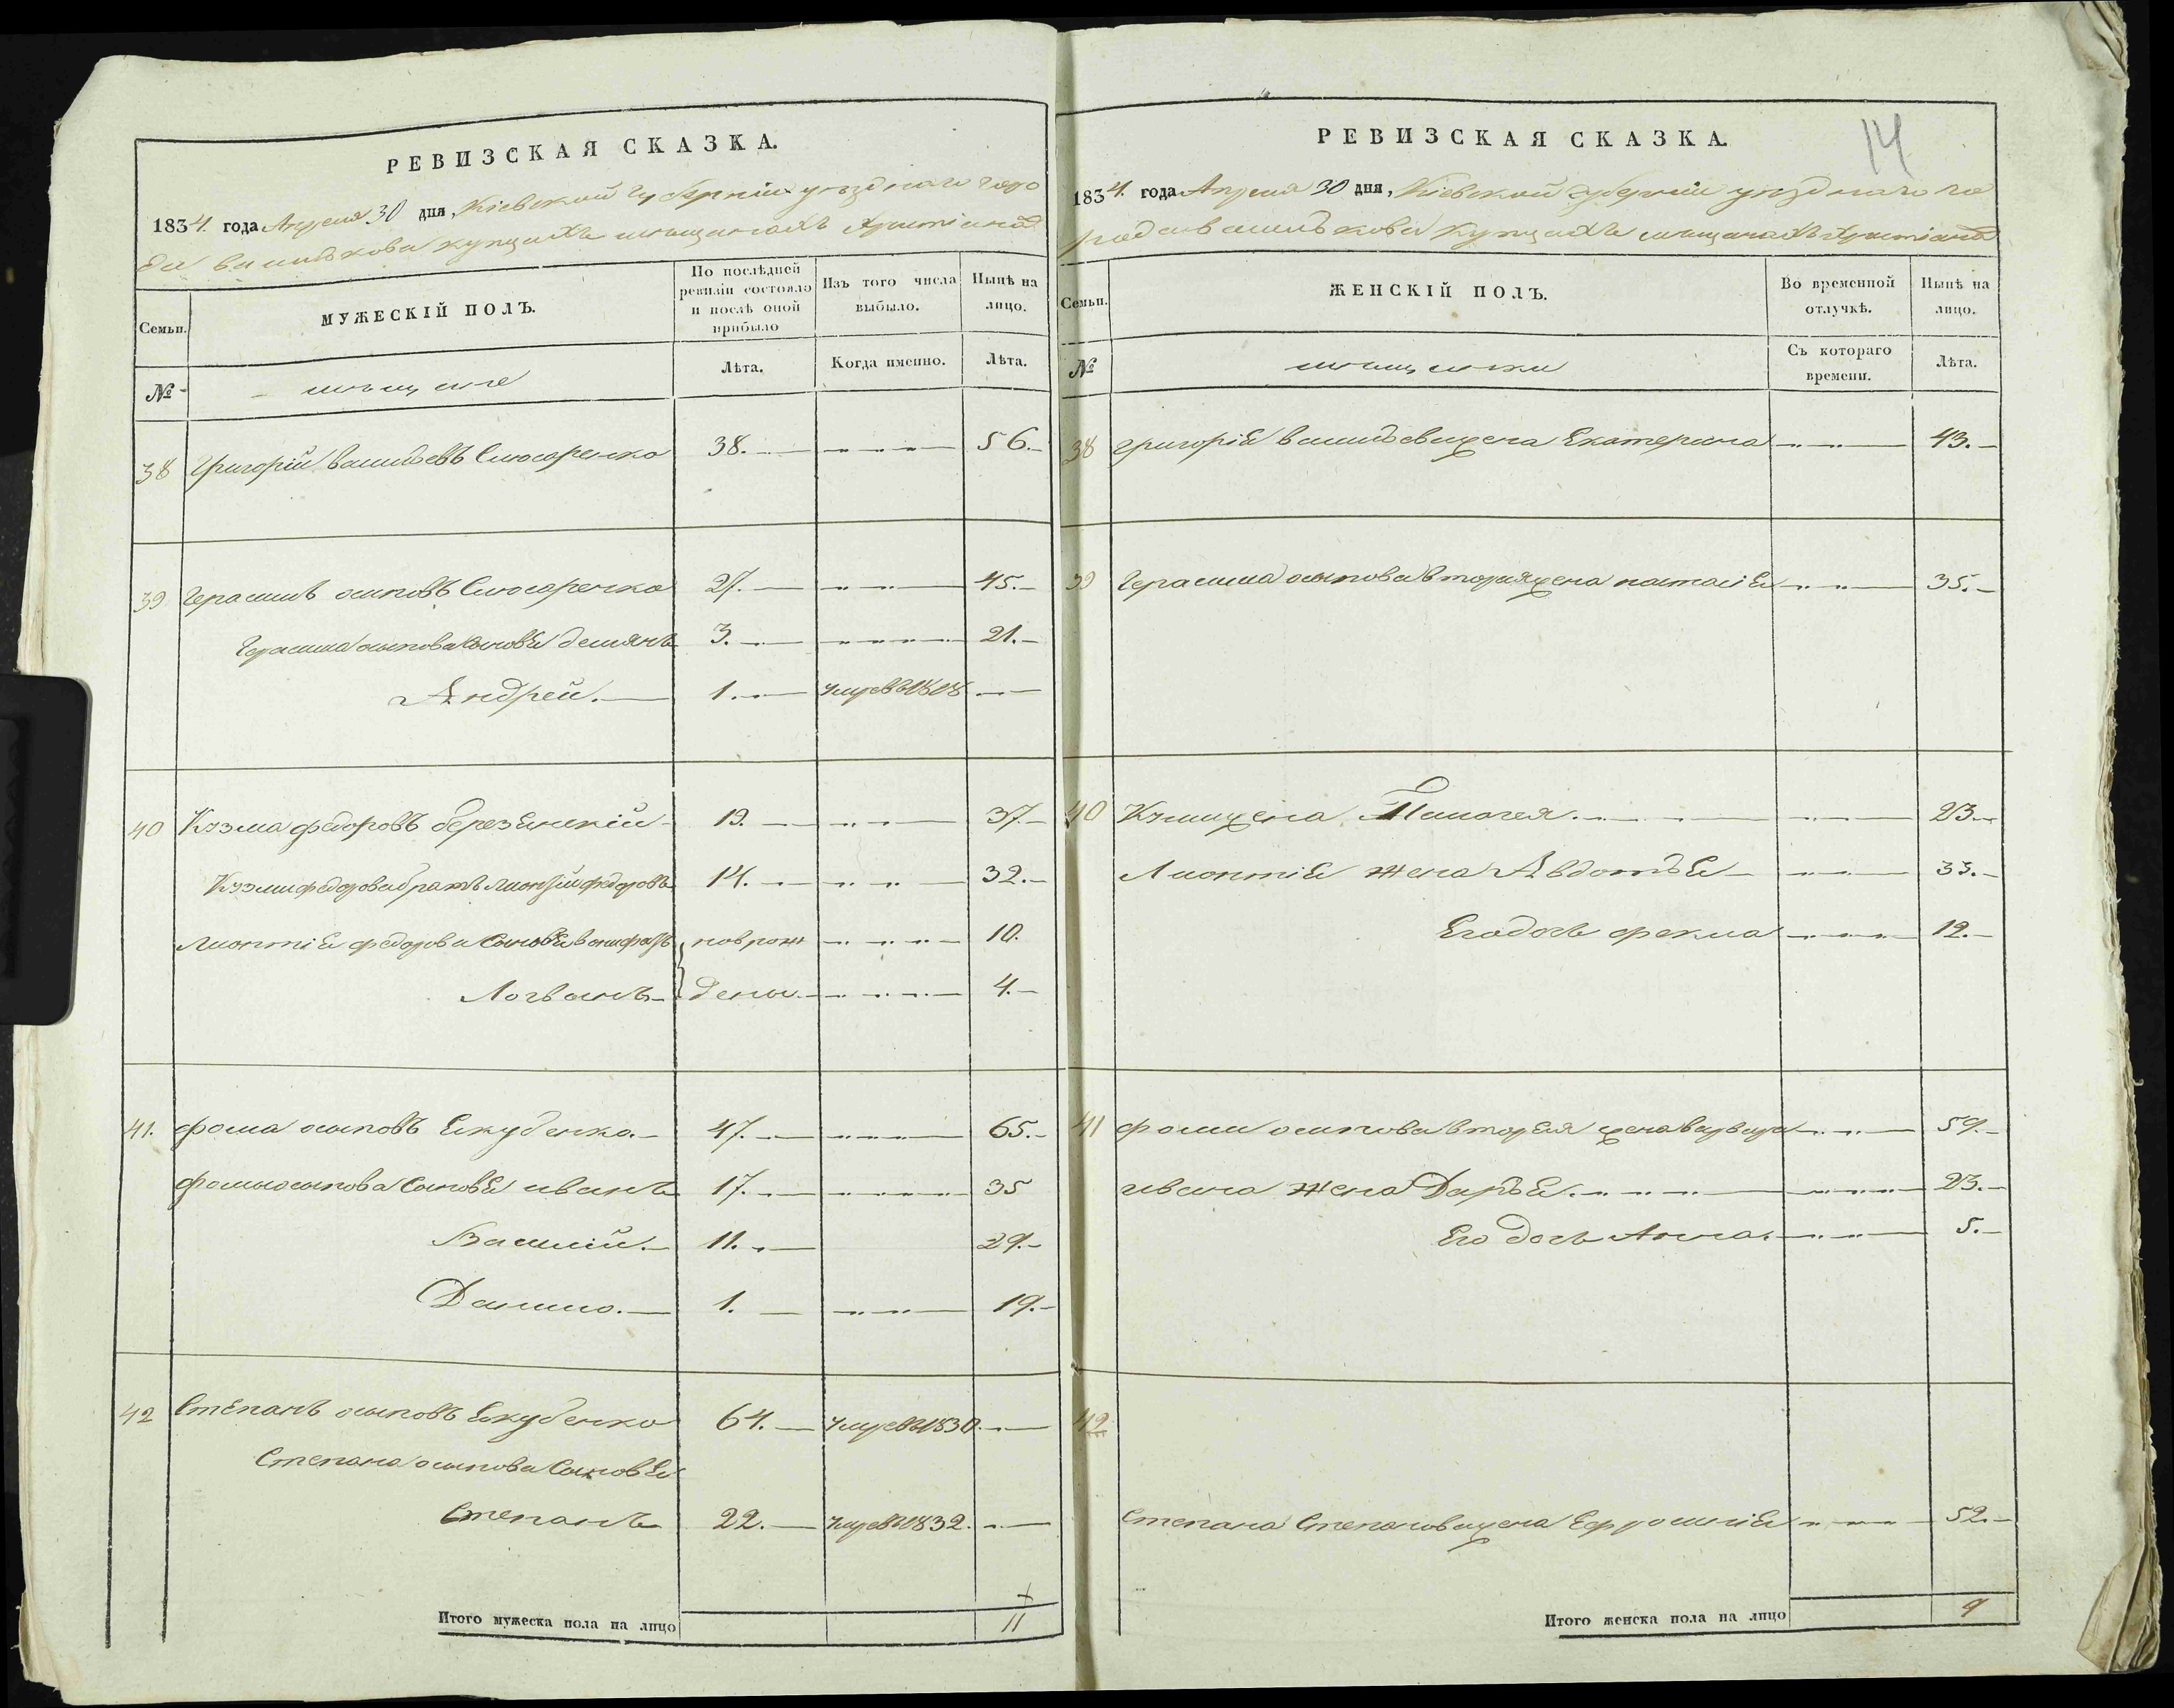 РЕВИЗСКАЯ СКАЗКА.
1834. года Апреля 30 дня, Кіевской Губерніи уезднаго горо
да василькова купцахъ мещанахъ Христіанах
Семьи.
МУЖЕСКІЙ ПОЛЪ.
По послѣдней ревизіи состояло и послѣ оной прибыло
Изъ того числа выбыло.
Нынѣ на лицо.
№
мещане
Лѣта.
Когда именно.
Лѣта.
38 Григорій васильевъ Слюсаренко 38. 56.
39 Герасимъ осиповъ Слюсаренко 27. 45.
Герасима осипова сыновья демянъ 3. 21.
Андрей. 1. умре въ 1818
40 Козма федоровъ березинскій 19. 37.
Козмы федорова братъ лионтій федоровъ 14. 32.
лионтія федорова сыновья 10.
новрож
Логвинъ 4.
дены.
41. фома осиповъ Якубенко. 47. 65.
фомы осипова сыновья иванъ 17. 35
Василій. 11. 29.
Данило. 1. 19.
42 Степанъ осиповъ Якубенко 64. умре въ 1830.
Степана осипова сыновья
Степанъ 22. умре въ 1832.
Итого мужеска пола на лицо 11
14
РЕВИЗСКАЯ СКАЗКА.
1834. года Апреля 30 дня, Кіевской губерніи уезднаго го
рода василькова купцахъ мещанахъ Христіанах
Семьи.
ЖЕНСКІЙ ПОЛЪ.
Во временной отлучкѣ.
Нынѣ на лицо.
№
мещанки
Съ котораго времени.
Лѣта.
38 григорія васильева жена Екатерина 43.
39 Герасима осипова вторая жена настасія 35.
40 Кузмы жена Пелагея. 23.
Лионтія жена Авдотья 33.
Его дочь фекла 12.
41 фомы осипова вторая жена варвара 59.
ивана жена Дарья. 23.
Его дочь Анна. 5.
42
Степана Степанова жена Ефросинія 52.
Итого женска пола на лицо 9